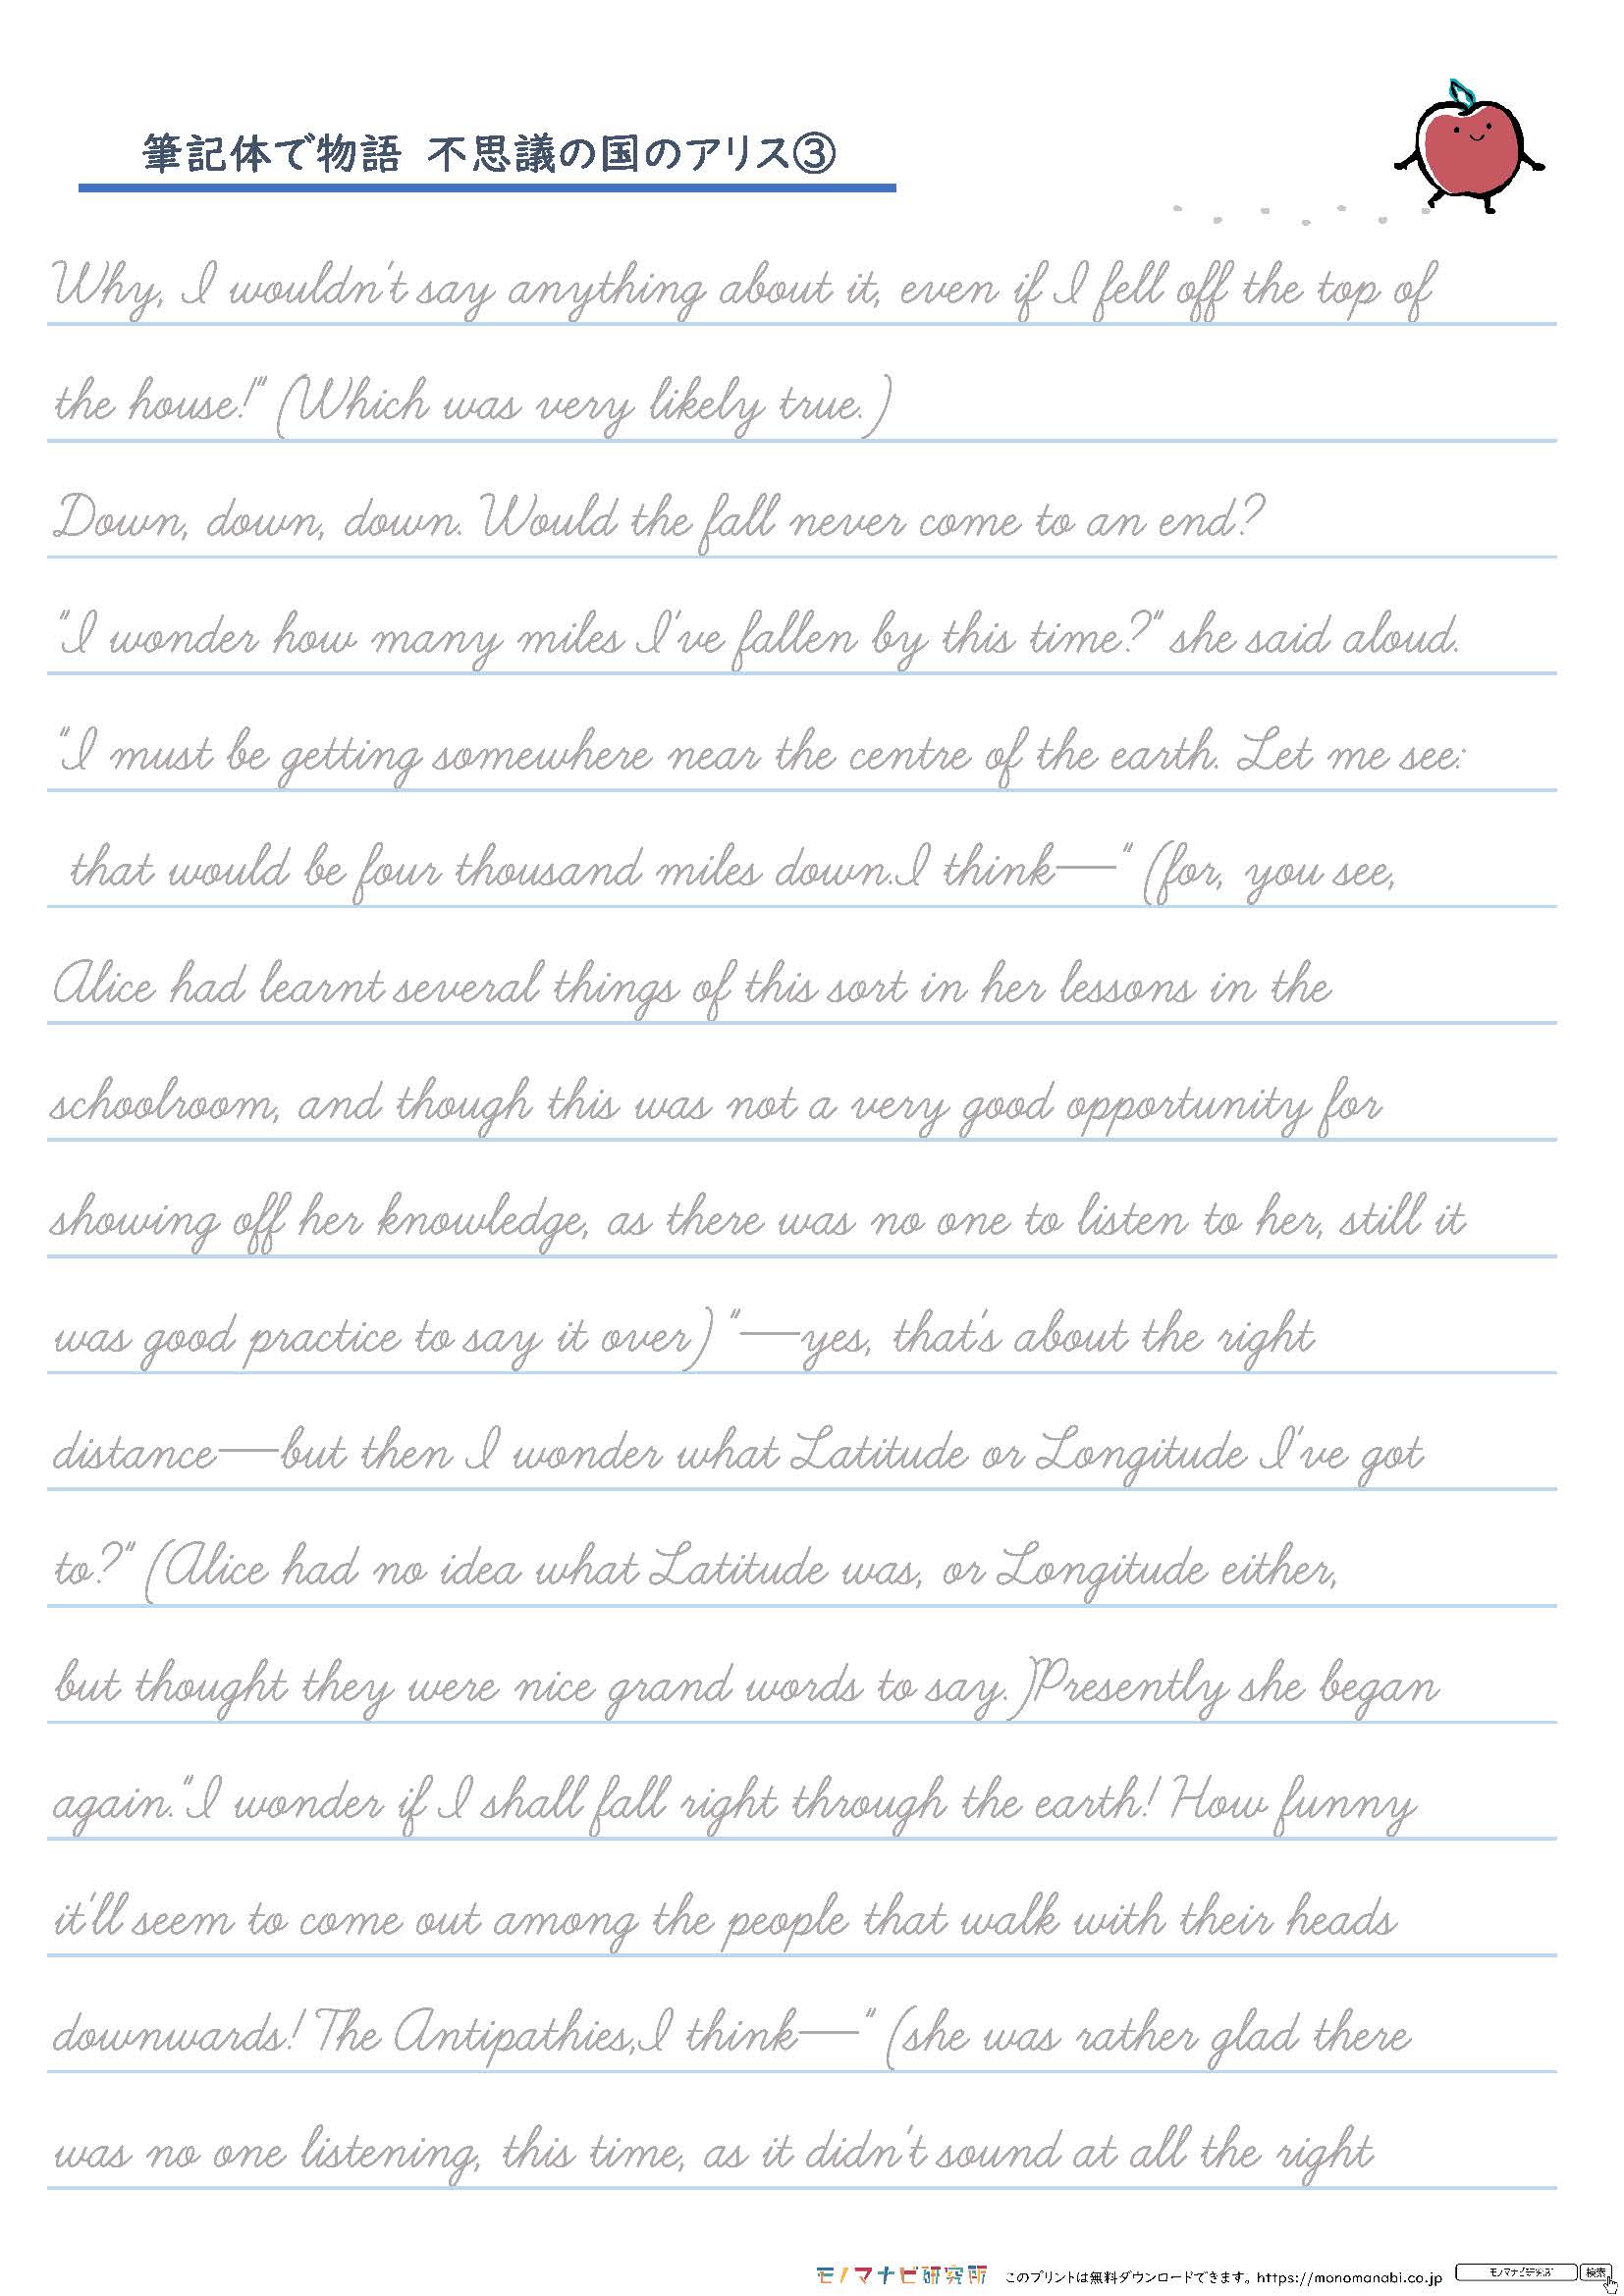 筆記体で物語 不思議の国のアリス③
Why, I wouldn't say anything about it, even if I fell off the top of
the house!" (Which was very likely true.)
Down, down, down. Would the fall never come to an end?
"I wonder how many miles I've fallen by this time?" she said aloud.
"I must be getting somewhere near the centre of the earth. Let me see:
that would be four thousand miles down.I think—" (for, you see,
Alice had learnt several things of this sort in her lessons in the
schoolroom, and though this was not a very good opportunity for
showing off her knowledge, as there was no one to listen to her, still it
was good practice to say it over) "—yes, that's about the right
distance—but then I wonder what Latitude or Longitude I've got
to?" (Alice had no idea what Latitude was, or Longitude either,
but thought they were nice grand words to say.)Presently she began
again."I wonder if I shall fall right through the earth! How funny
it'll seem to come out among the people that walk with their heads
downwards! The Antipathies,I think—" (she was rather glad there
was no one listening, this time, as it didn't sound at all the right
モノマナビ研究所 このプリントは無料ダウンロードできます。https://monomanabi.co.jp モノマナビ研究所 検索